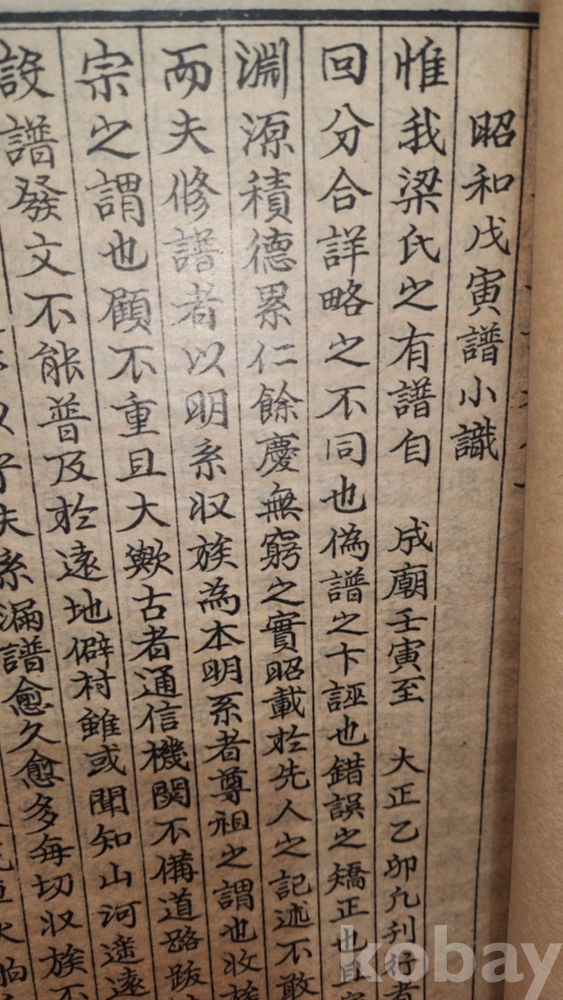 昭和戊寅譜小識
惟我梁氏之有譜自 成廟壬寅至 大正乙卯凡刋行者
回分合詳略之不同也偽譜之卞誣也錯誤之矯正也且
淵源積德累仁餘慶無窮之實昭載於先人之記述不敢
而夫修譜者以明系收族為本明系者尊祖之謂也收族
宗之謂也顧不重且大歟古者通信機関不備道路跋
設譜發文不能普及於遠地僻村雖或聞知山河遥遠
夫系漏譜愈久愈多每切収族不
kobay